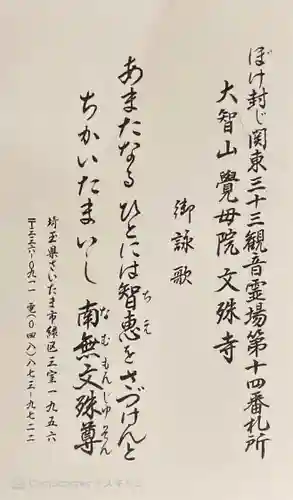 ぼけ封じ関東三十三觀音霊場第十四番札所
大智山覺母院文殊寺
御詠歌
あまたなるひとには智恵をさづけんと
ちえ
ちかいたまいし南無文殊尊
なむもんじゅそん
埼玉県さいたま市緑区三室一九五六
〒三三六-〇九一一 電(〇四八)八七三-九七二二